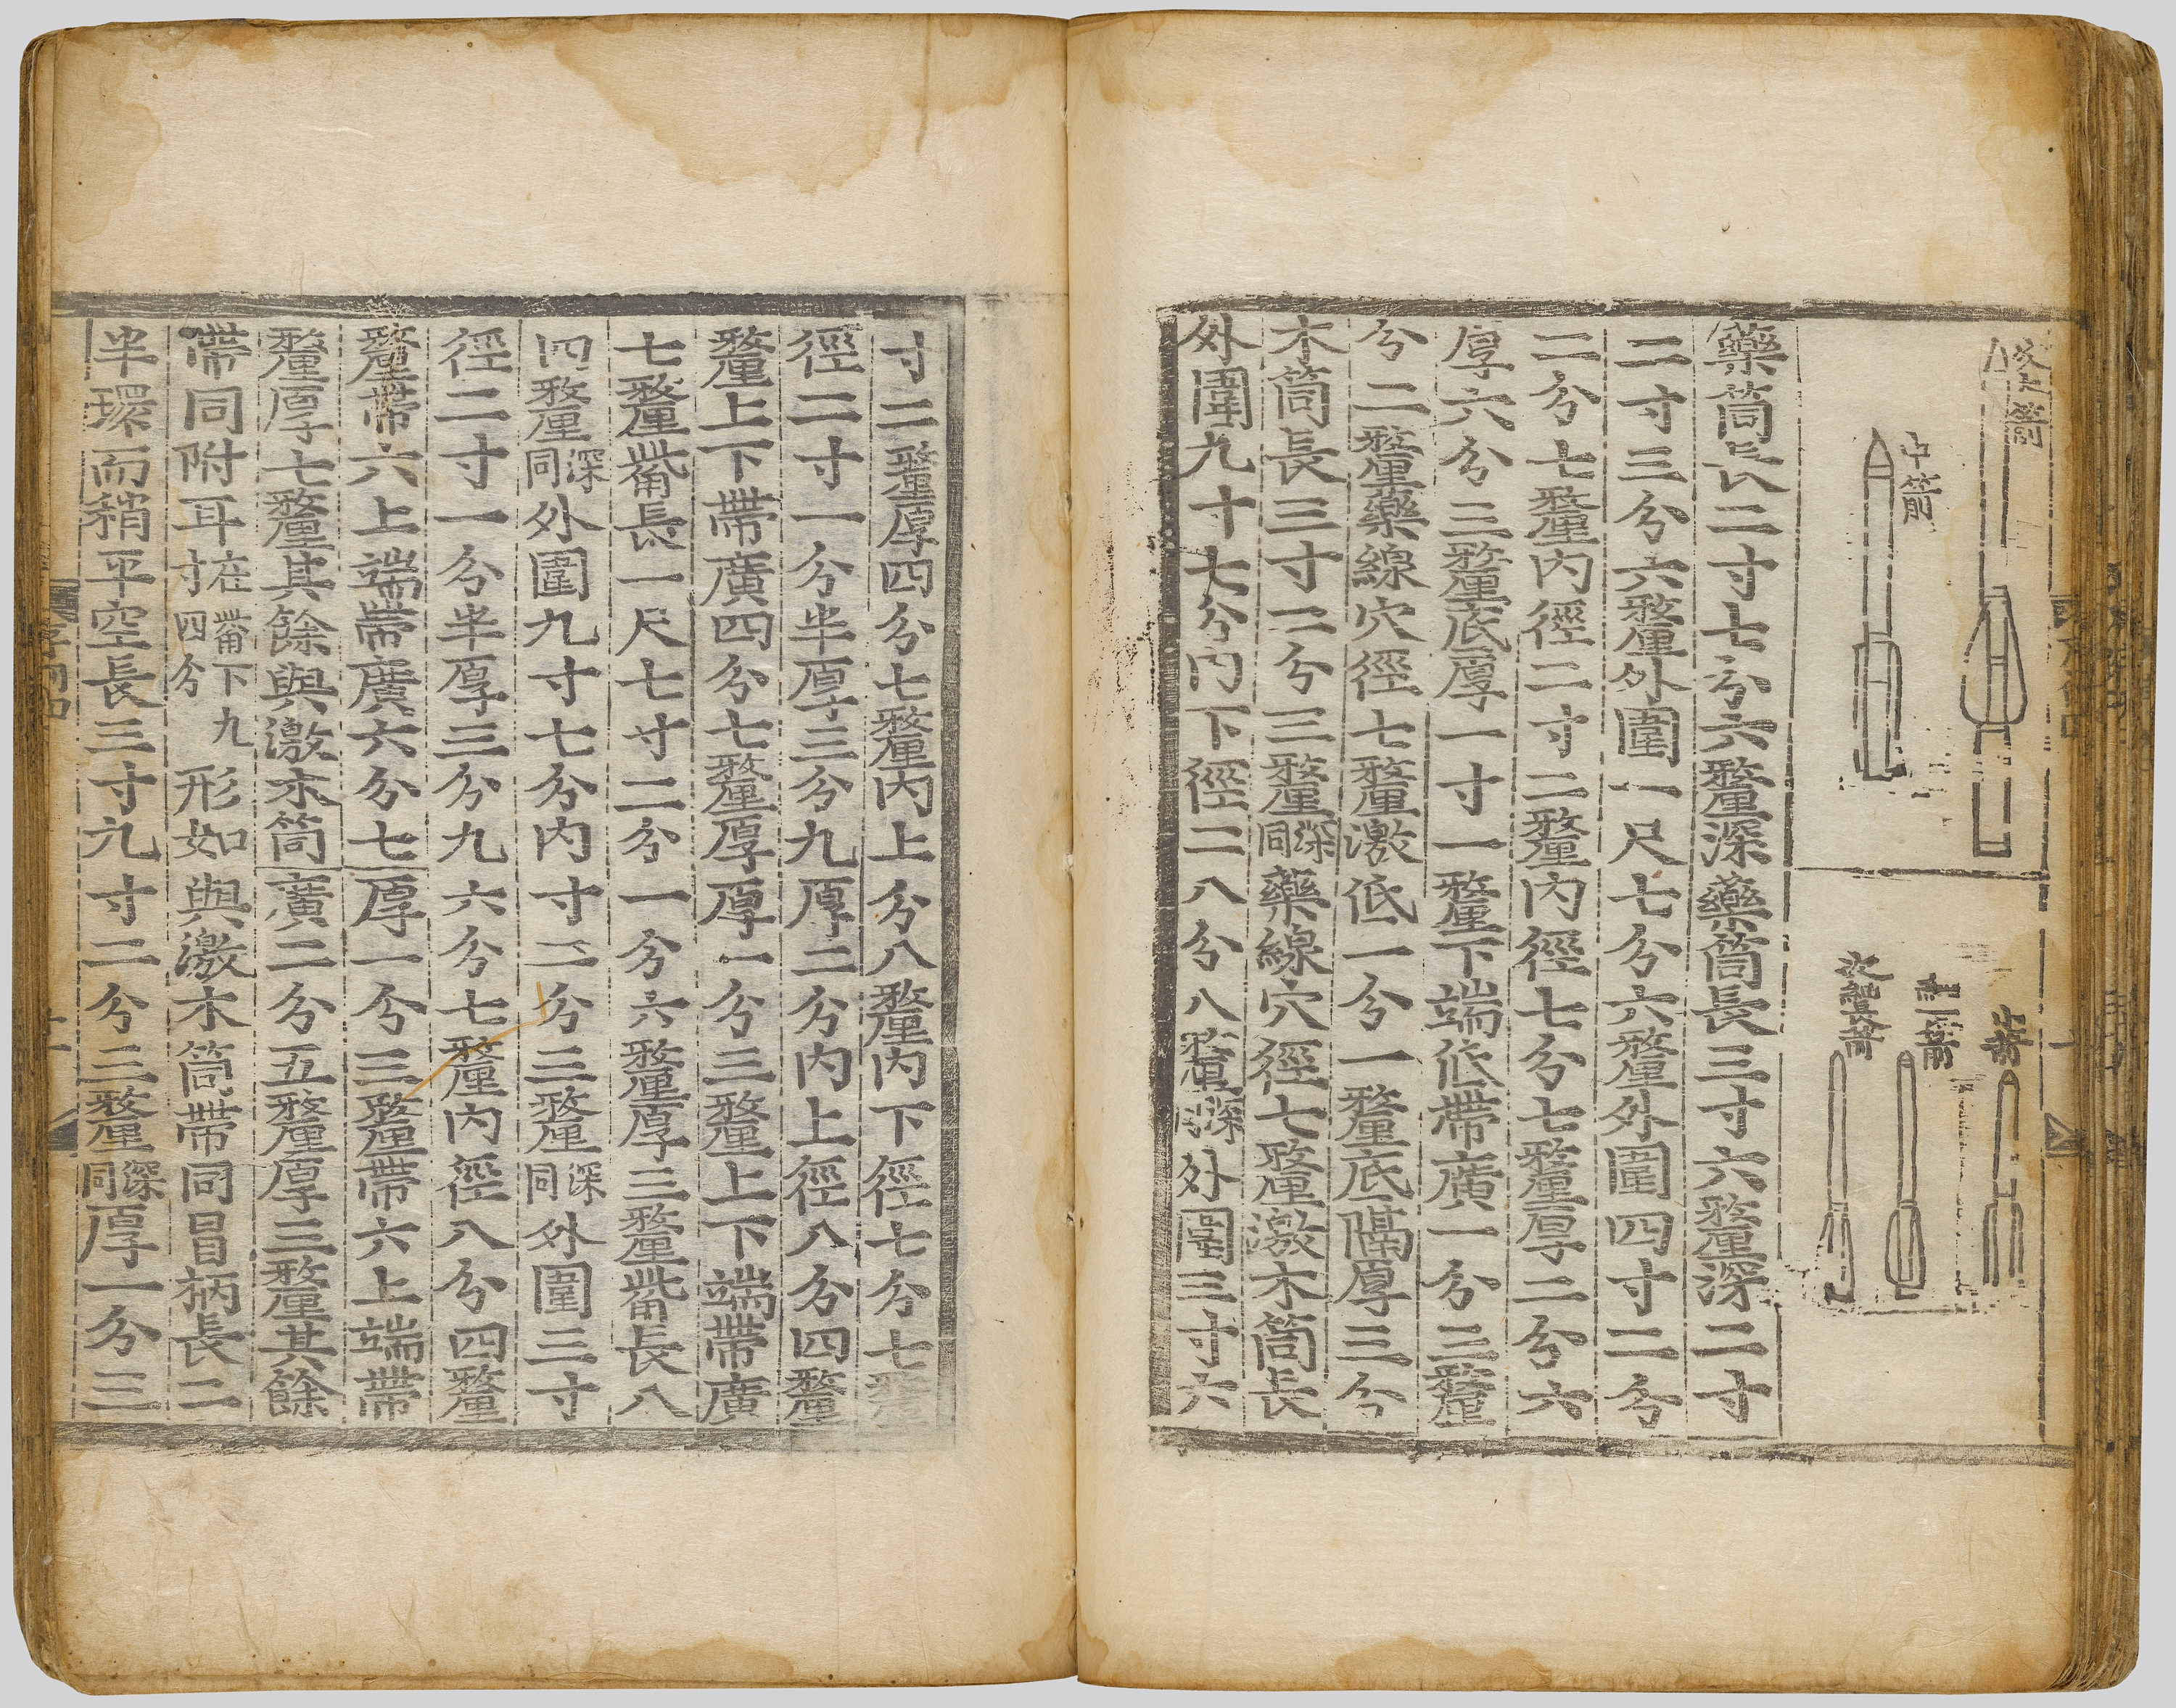 中箭
藥筒長二寸七分六釐深藥筒長三寸六釐深二寸
二寸三分六釐外圍一尺七分六釐外圍四寸二分
二分七釐內徑二寸二釐內徑七分七釐厚二分六
厚六分三釐底厚一寸一釐下端低帶廣一分三釐
分二釐藥線穴徑七釐激低一分一釐底隔厚三分
木筒長三寸二分三釐深同藥線穴徑七釐激木筒長
外圍九十七分內下徑二八分八釐深外圍三寸六
寸二釐厚四分七釐內上分八釐內下徑七分七
徑二寸一分半厚三分九厚二分內上徑八分四釐
釐上下帶廣四分七釐厚厚一分三釐上下端帶廣
七釐觜長一尺七寸二分一分六釐厚三釐觜長八
四釐深同外圍九寸七分內寸二分三釐深同外圍三寸
徑二寸一分半厚三分九六分七釐內徑八分四釐
釐帶六上端帶廣六分七厚一分三釐帶六上端帶
釐厚七釐其餘與激木筒廣二分五釐厚三釐其餘
帶同附耳在觜下九寸四分形如與激木筒帶同冒柄長二
半環而稍平空長三寸九寸二分三釐深同厚一分三